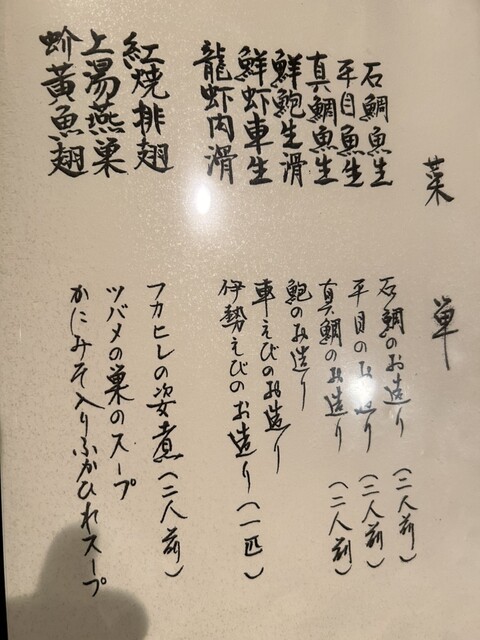 菜単
石鯛魚生
平目魚生
真鯛魚生
鮮鮑生滑
鮮虾車生
龍虾肉滑
紅焼排翅
上湯燕巣
蚧黄魚翅
石鯛のお造り(二人前)
平目のお造り(二人前)
真鯛のお造り(二人前)
鮑のお造り
車えびのお造り
伊勢えびのお造り(一匹)
フカヒレの姿煮(二人前)
ツバメの巣のスープ
かにみそ入りふかひれスープ